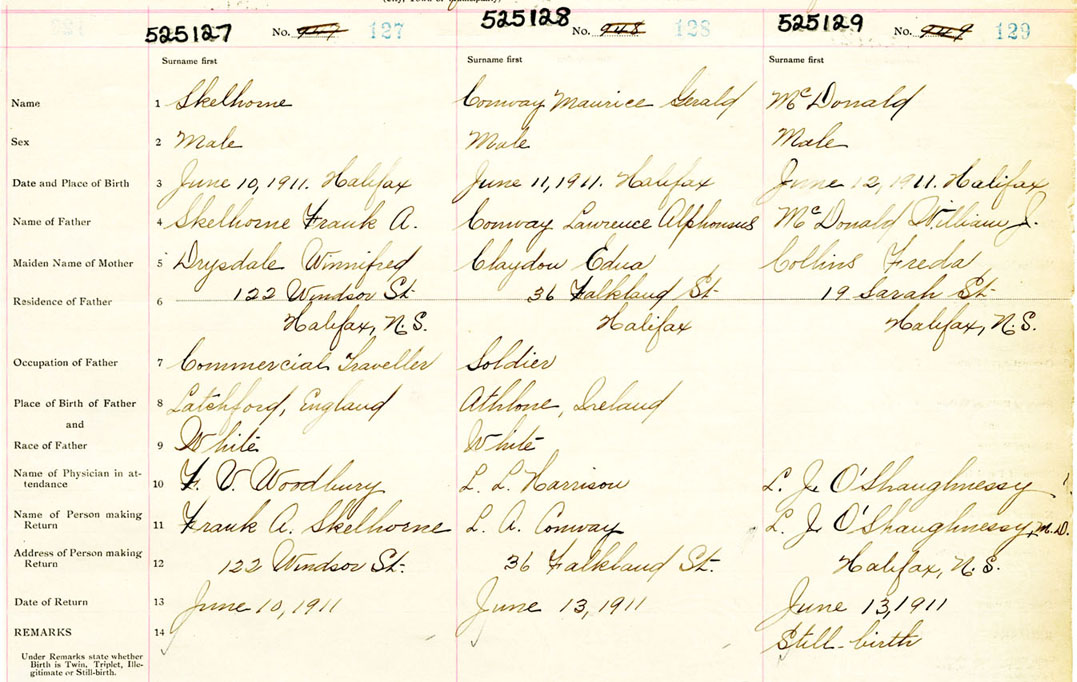 525127 No. 947 127 525128 No. 948 128 525129 No. 949 129
Surname first Surname first Surname first
Name 1 Skelhorne Conway Maurice Gerald McDonald
Sex 2 Male Male Male
Date and Place of Birth 3 June 10, 1911. Halifax June 11, 1911. Halifax June 12, 1911. Halifax
Name of Father 4 Skelhorne Frank A. Conway Lawrence Alphonsus McDonald William J.
Maiden Name of Mother 5 Drysdale Winnifred Claydon Edna Collins Freda
Residence of Father 6 122 Windsor St. 36 Falkland St. 19 Sarah St.
Halifax, N.S. Halifax Halifax, N.S.
Occupation of Father 7 Commercial Traveller Soldier
Place of Birth of Father 8 Latchford, England Athlone, Ireland
and
Race of Father 9 White White
Name of Physician in at-
tendance 10 F. V. Woodbury L. L. Harrison L. J. O'Shaughnessy
Name of Person making
Return 11 Frank A. Skelhorne L. A. Conway L. J. O'Shaughnessy, M.D.
Address of Person making
Return 12 122 Windsor St. 36 Falkland St. Halifax, N.S.
Date of Return 13 June 10, 1911 June 13, 1911 June 13, 1911
REMARKS 14 Still-birth
Under Remarks state whether
Birth is Twin, Triplet, Ille-
gitimate or Still-birth.